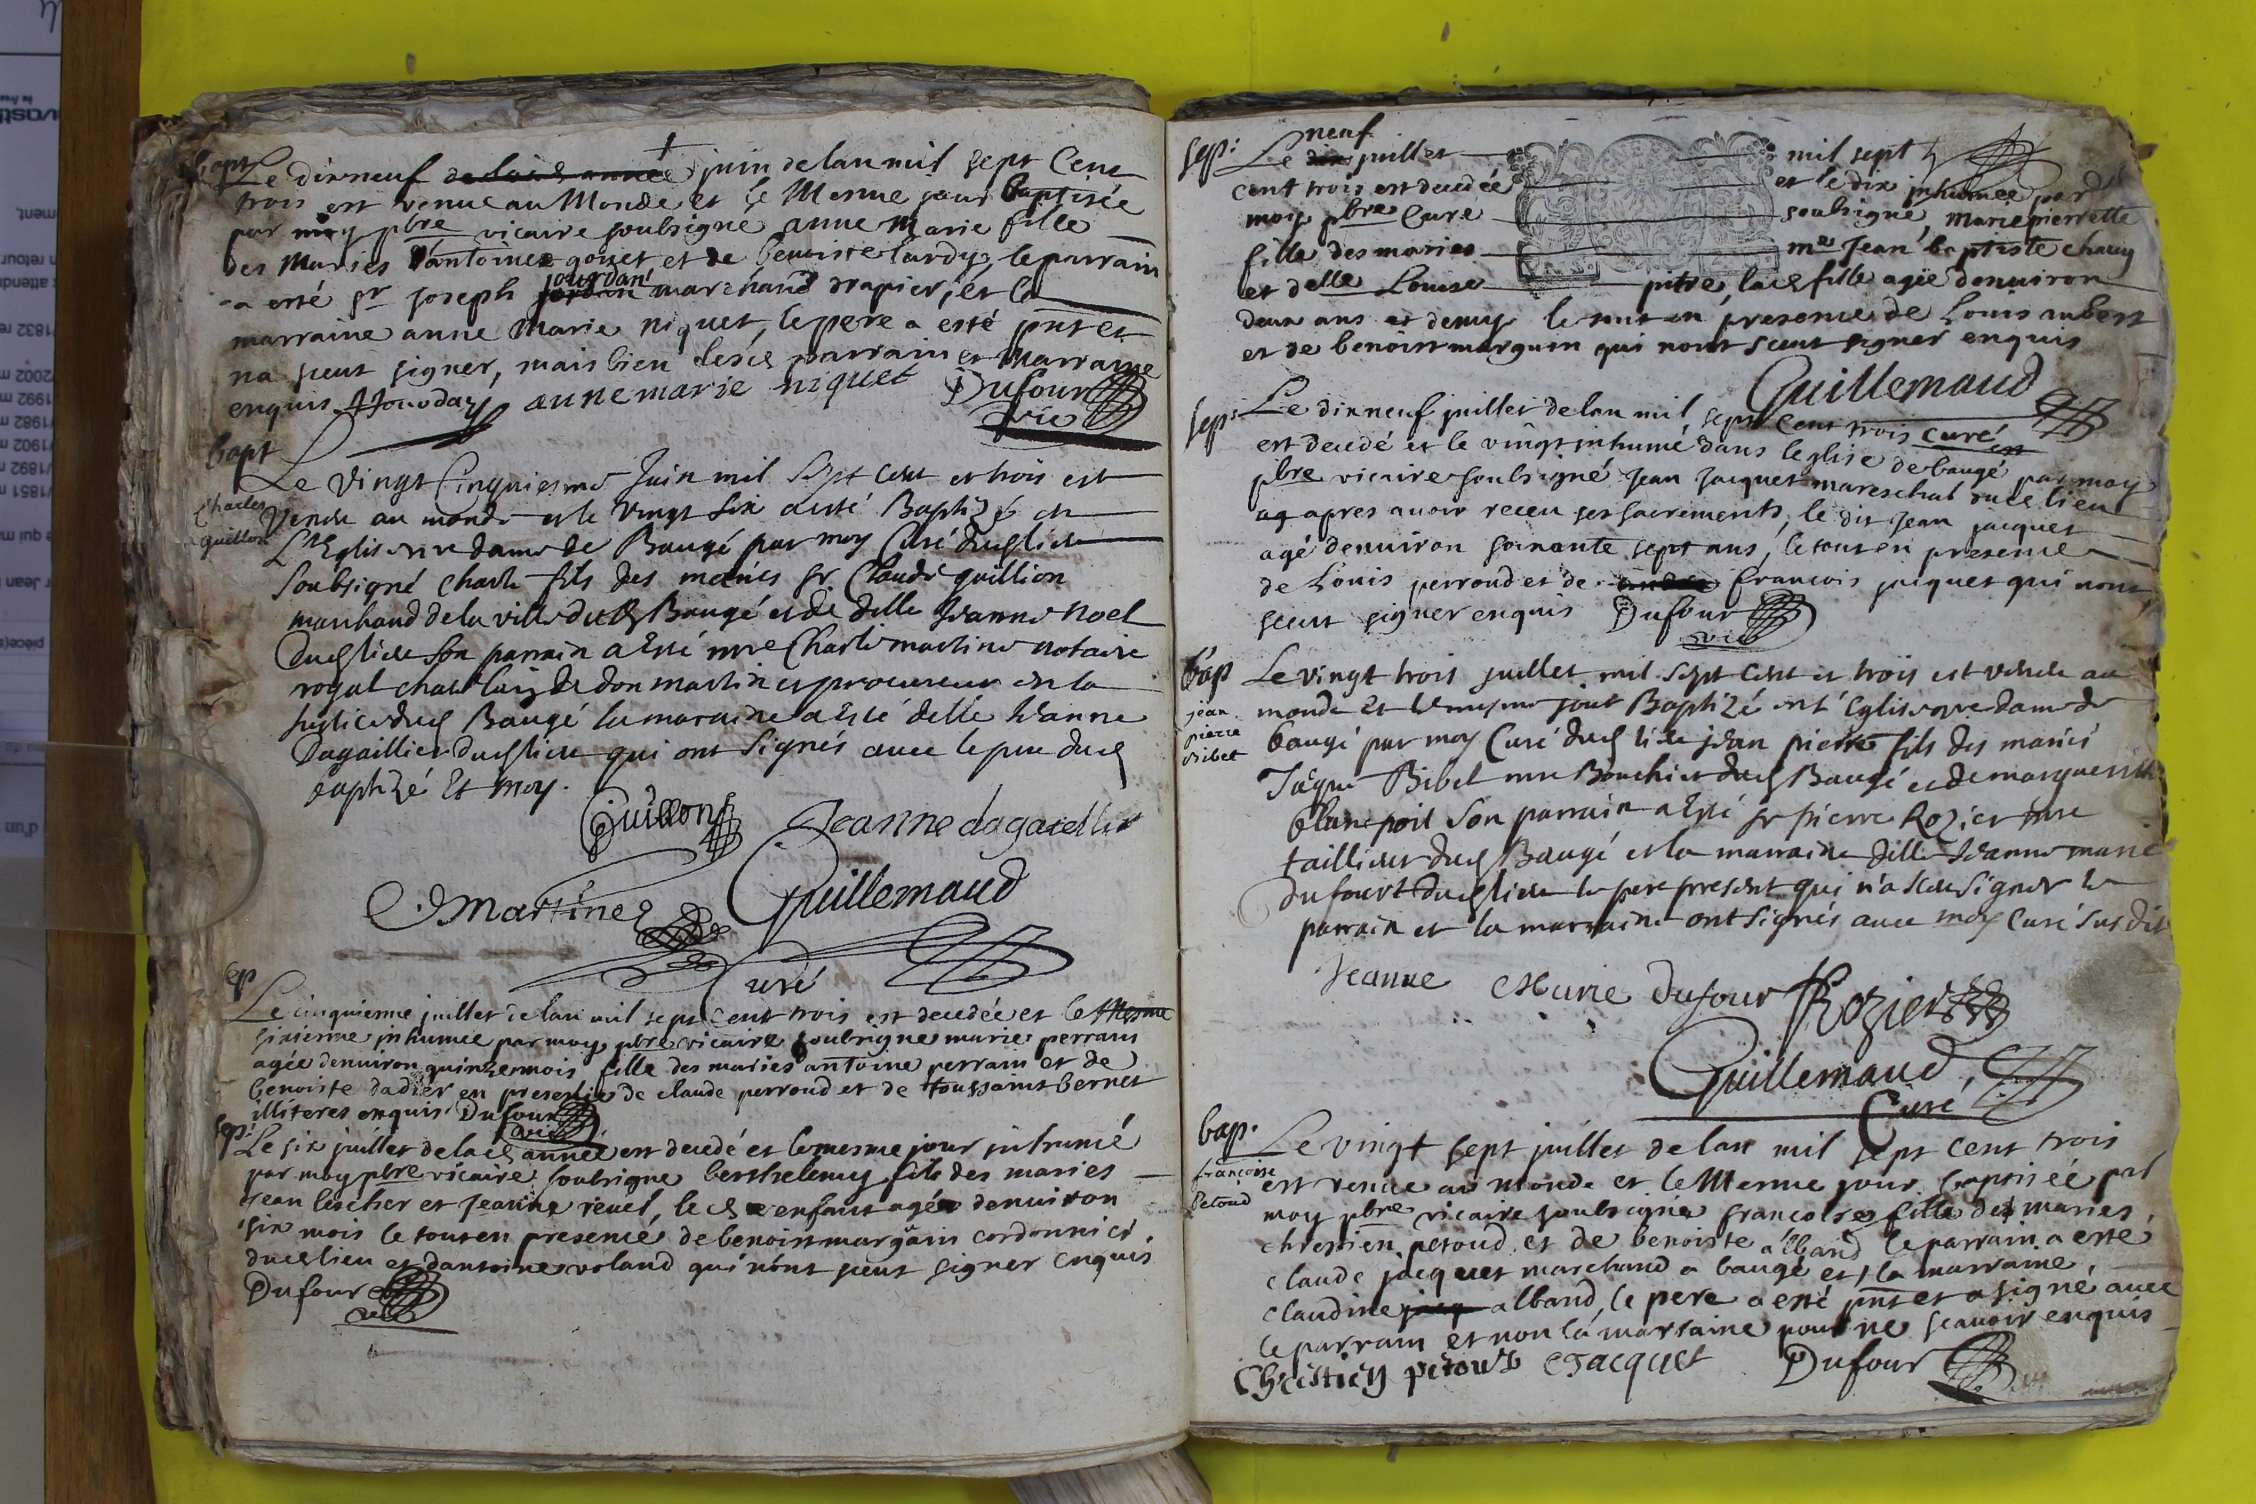 bapt
Le dixneuf de lad annee juin de lan mil sept Cent
trois est venue au Monde et le Mesme jour baptisée
par moy pbre vicaire soubsigné anne Marie fille
des Maries dantoine goyet et de benoiste lardy, le parrain
a esté sr joseph jordan jourdan marchand drapier, et la
marraine anne Marie niquet, le pere a esté pnt et
na sceut signer, mais bien lesd parrain et Marraine
enquis anne marie niquet Dufour
vic
bapt
Charles
guillon
Le vingt Cinquiesme Juin mil Sept cent et trois est
Venu au monde et le vingt six a esté Baptizé en
L'Eglise nre dame de Baugé par moy Curé dud lieu
soubsigné Charle fils des mariés sr Claude guillion
marchand de la ville dud Baugé et de dlle Jeanne Noel
dud lieu son parrain a Esté mre Charle martine notaire
royal chastelain de don martin et procureur en la
Justice dud Baugé la maraine a Esté delle Jeanne
Dagaillier dud lieu qui ont Signés avec le pere dud
baptizé Et moy.
Guillon Jeanne dagaillier
CMartine Guillemaud
Curé
sep
Le cinquiesme juillet de lan mil sept Cent trois est decedée et le Mesme
sixieme inhumée par moy pbre vicaire soubsigne marie perrain
agée denuiron quinze mois fille des maries antoine perrain et de
benoiste dadier en presence de claude perroud et de toussaint bernet
illiteres enquis Dufour
vic
sep:
Le six juillet de lad année est decedé et le mesme jour inhumé
par moy pbre vicaire soubsigne berthelemy fils des maries
Jean lescher et Jeanne revel, led enfant agée denuiron
six mois le tout en presence de benoist margain cordonnier
dud lieu et dantoine voland qui nont sceut signer enquis
Dufour
vic
sep:
Le dix neuf juillet mil sept
cent trois est decedée et le dix inhumée par
moy pbre Curé soubsigné, Marie pierrette
fille des maries mre Jean baptiste chaug
et delle Louise pitre, lad fille agée denuiron
deux ans et demy le tout en presence de Louis aubert
et de benoist margain qui nont sceut signer enquis
Guillemaud
curé
sep:
Le dixneuf juillet de lan mil sept Cent trois
est decedé et le vingt inhumé dans leglise de baugé par moy
pbre vicaire soubsigné Jean Jacquet mareschal dud lieu
ag apres avoir receu ses sacrements, le dit Jean jacquet
agé denuiron soixante sept ans, le tout en presence
de Louis perroud et de francois jacquet qui nont
sceut signer enquis Dufour
vic
bap
jean
pierre
Bibet
Le vingt trois juillet mil Sept cent et trois est venu au
monde Et le mesme jour Baptizé en l'Eglise nre dame de
baugé par moy Curé dud lieu jean pierre fils des mariés
Jaque Bibet mre Bouchier dud Baugé et de marguerite
blancpoil Son parrain a Esté sr pierre Rozier mre
taillieur dud Baugé et la marraine delle Jeanne marie
dufourt dud lieu le pere present qui n'a sceu signer le
parrain et la marraine ont signés avec moy Curé Sus dit
Jeanne Marie Dufour Rozier
Guillemaud,
Curé
bap.
francoise
Petoud
Le vingt sept juillet de lan mil sept cent trois
est venue au monde et le Mesme jour baptisée par
moy pbre vicaire soubsigné francoise fille des maries
chrestien petoud et de benoiste alband le parrain a esté
claude jacquet marchand a baugé et la marraine
claudine jacq alband, le pere a esté pnt et a signé avec
le parrain et non la marraine pour ne scavoir enquis
Chrestien petoud CJacquet Dufour